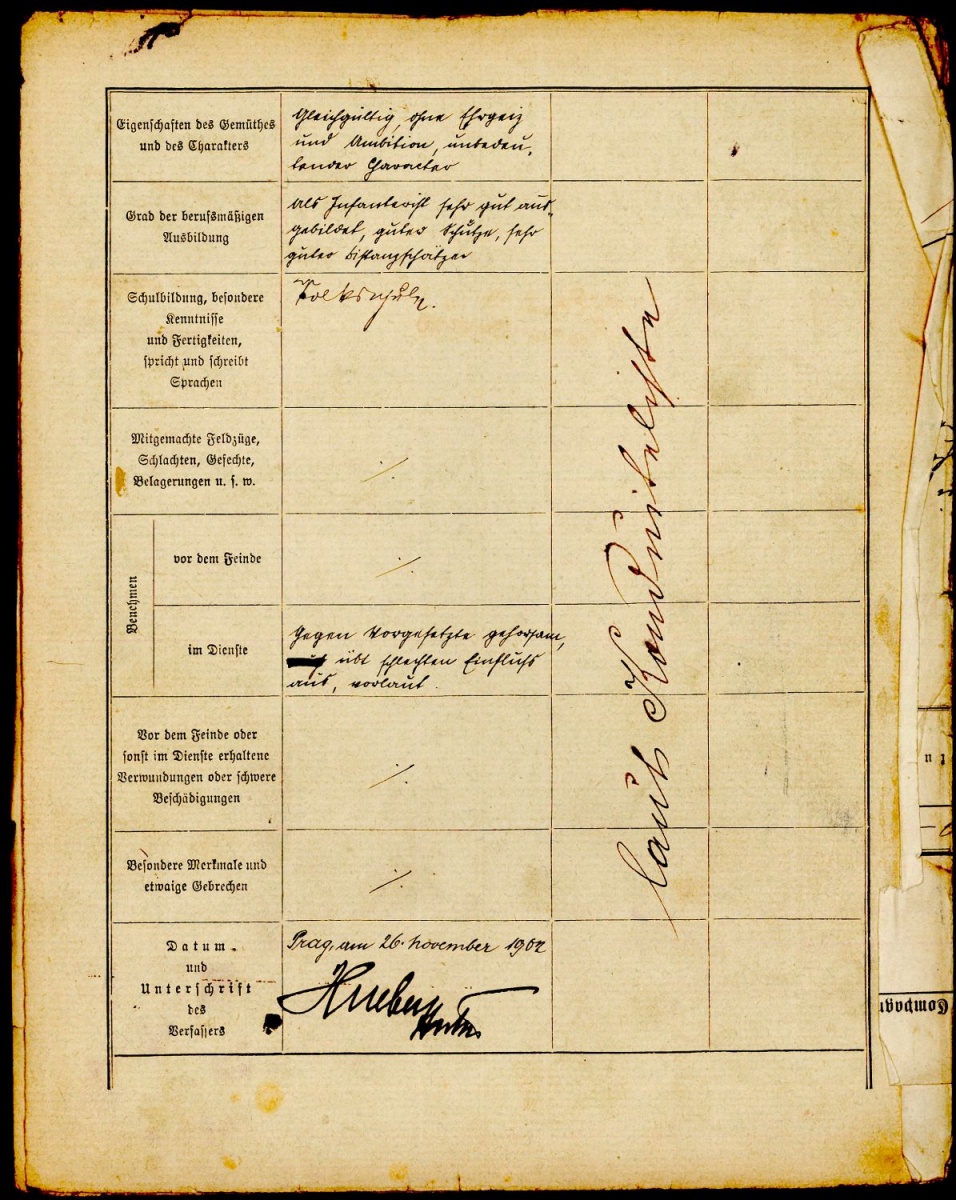 Eigenschaften des Gemüthes
und des Charakters
Gleichgültig, ohne Ehrgeiz
und Ambition, unbedeu-
tender Caracter
Grad der berufsmäßigen
Ausbildung
als Infanterist sehr gut aus-
gebildet, guter Schütze, sehr
guter Distanzschätzer
Schulbildung, besondere
Kenntnisse
und Fertigkeiten,
spricht und schreibt
Sprachen
Volksschule.
Mitgemachte Feldzüge,
Schlachten, Gefechte,
Belagerungen u. s. w.
./.
Benehmen
vor dem Feinde
./.
im Dienste
Gegen Vorgesetzte gehorsam,
übt schlechten Einfluss
aus, vorlaut.
Vor dem Feinde oder
sonst im Dienste erhaltene
Verwundungen oder schwere
Beschädigungen
./.
Besondere Merkmale und
etwaige Gebrechen
./.
Datum
und
Unterschrift
des
Verfassers
Prag, am 26. November 1902
laut Konduiteliste